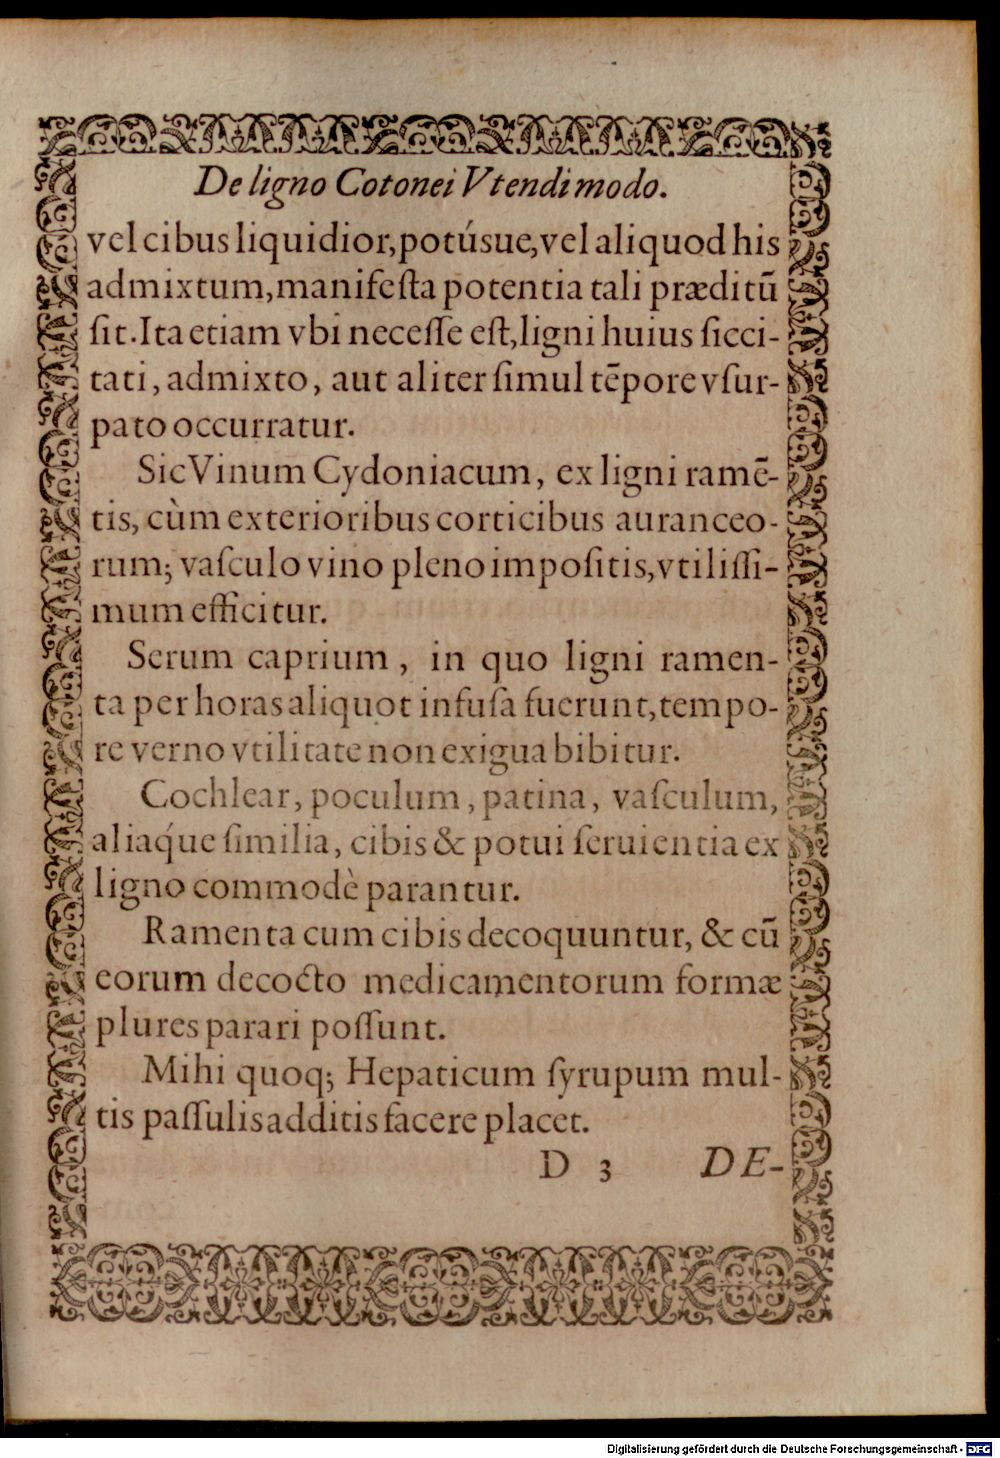 De ligno Cotonei Vtendi modo.
vel cibus liquidior, potúsue, vel aliquod his
admixtum, manifesta potentia tali præditū
ſit. Ita etiam vbi neceſſe eſt, ligni huius ſicci-
tati, admixto, aut aliter ſimul tēpore vſur-
pato occurratur.
Sic Vinum Cydoniacum, ex ligni ramē-
tis, cùm exterioribus corticibus auranceo-
rum; vaſculo vino pleno impoſitis, vtiliſſi-
mum efficitur.
Serum caprium, in quo ligni ramen-
ta per horas aliquot infuſa fuerunt, tempo-
re verno vtilitate non exigua bibitur.
Cochlear, poculum, patina, vaſculum,
aliaq́ue ſimilia, cibis & potui ſeruientia ex
ligno commodè parantur.
Ramenta cum cibis decoquuntur, & cū
eorum decocto medicamentorum formæ
plures parari poſſunt.
Mihi quoq; Hepaticum ſyrupum mul-
tis paſſulis additis facere placet.
D 3 DE-
Digitalisierung gefördert durch die Deutsche Forschungsgemeinschaft - DFG